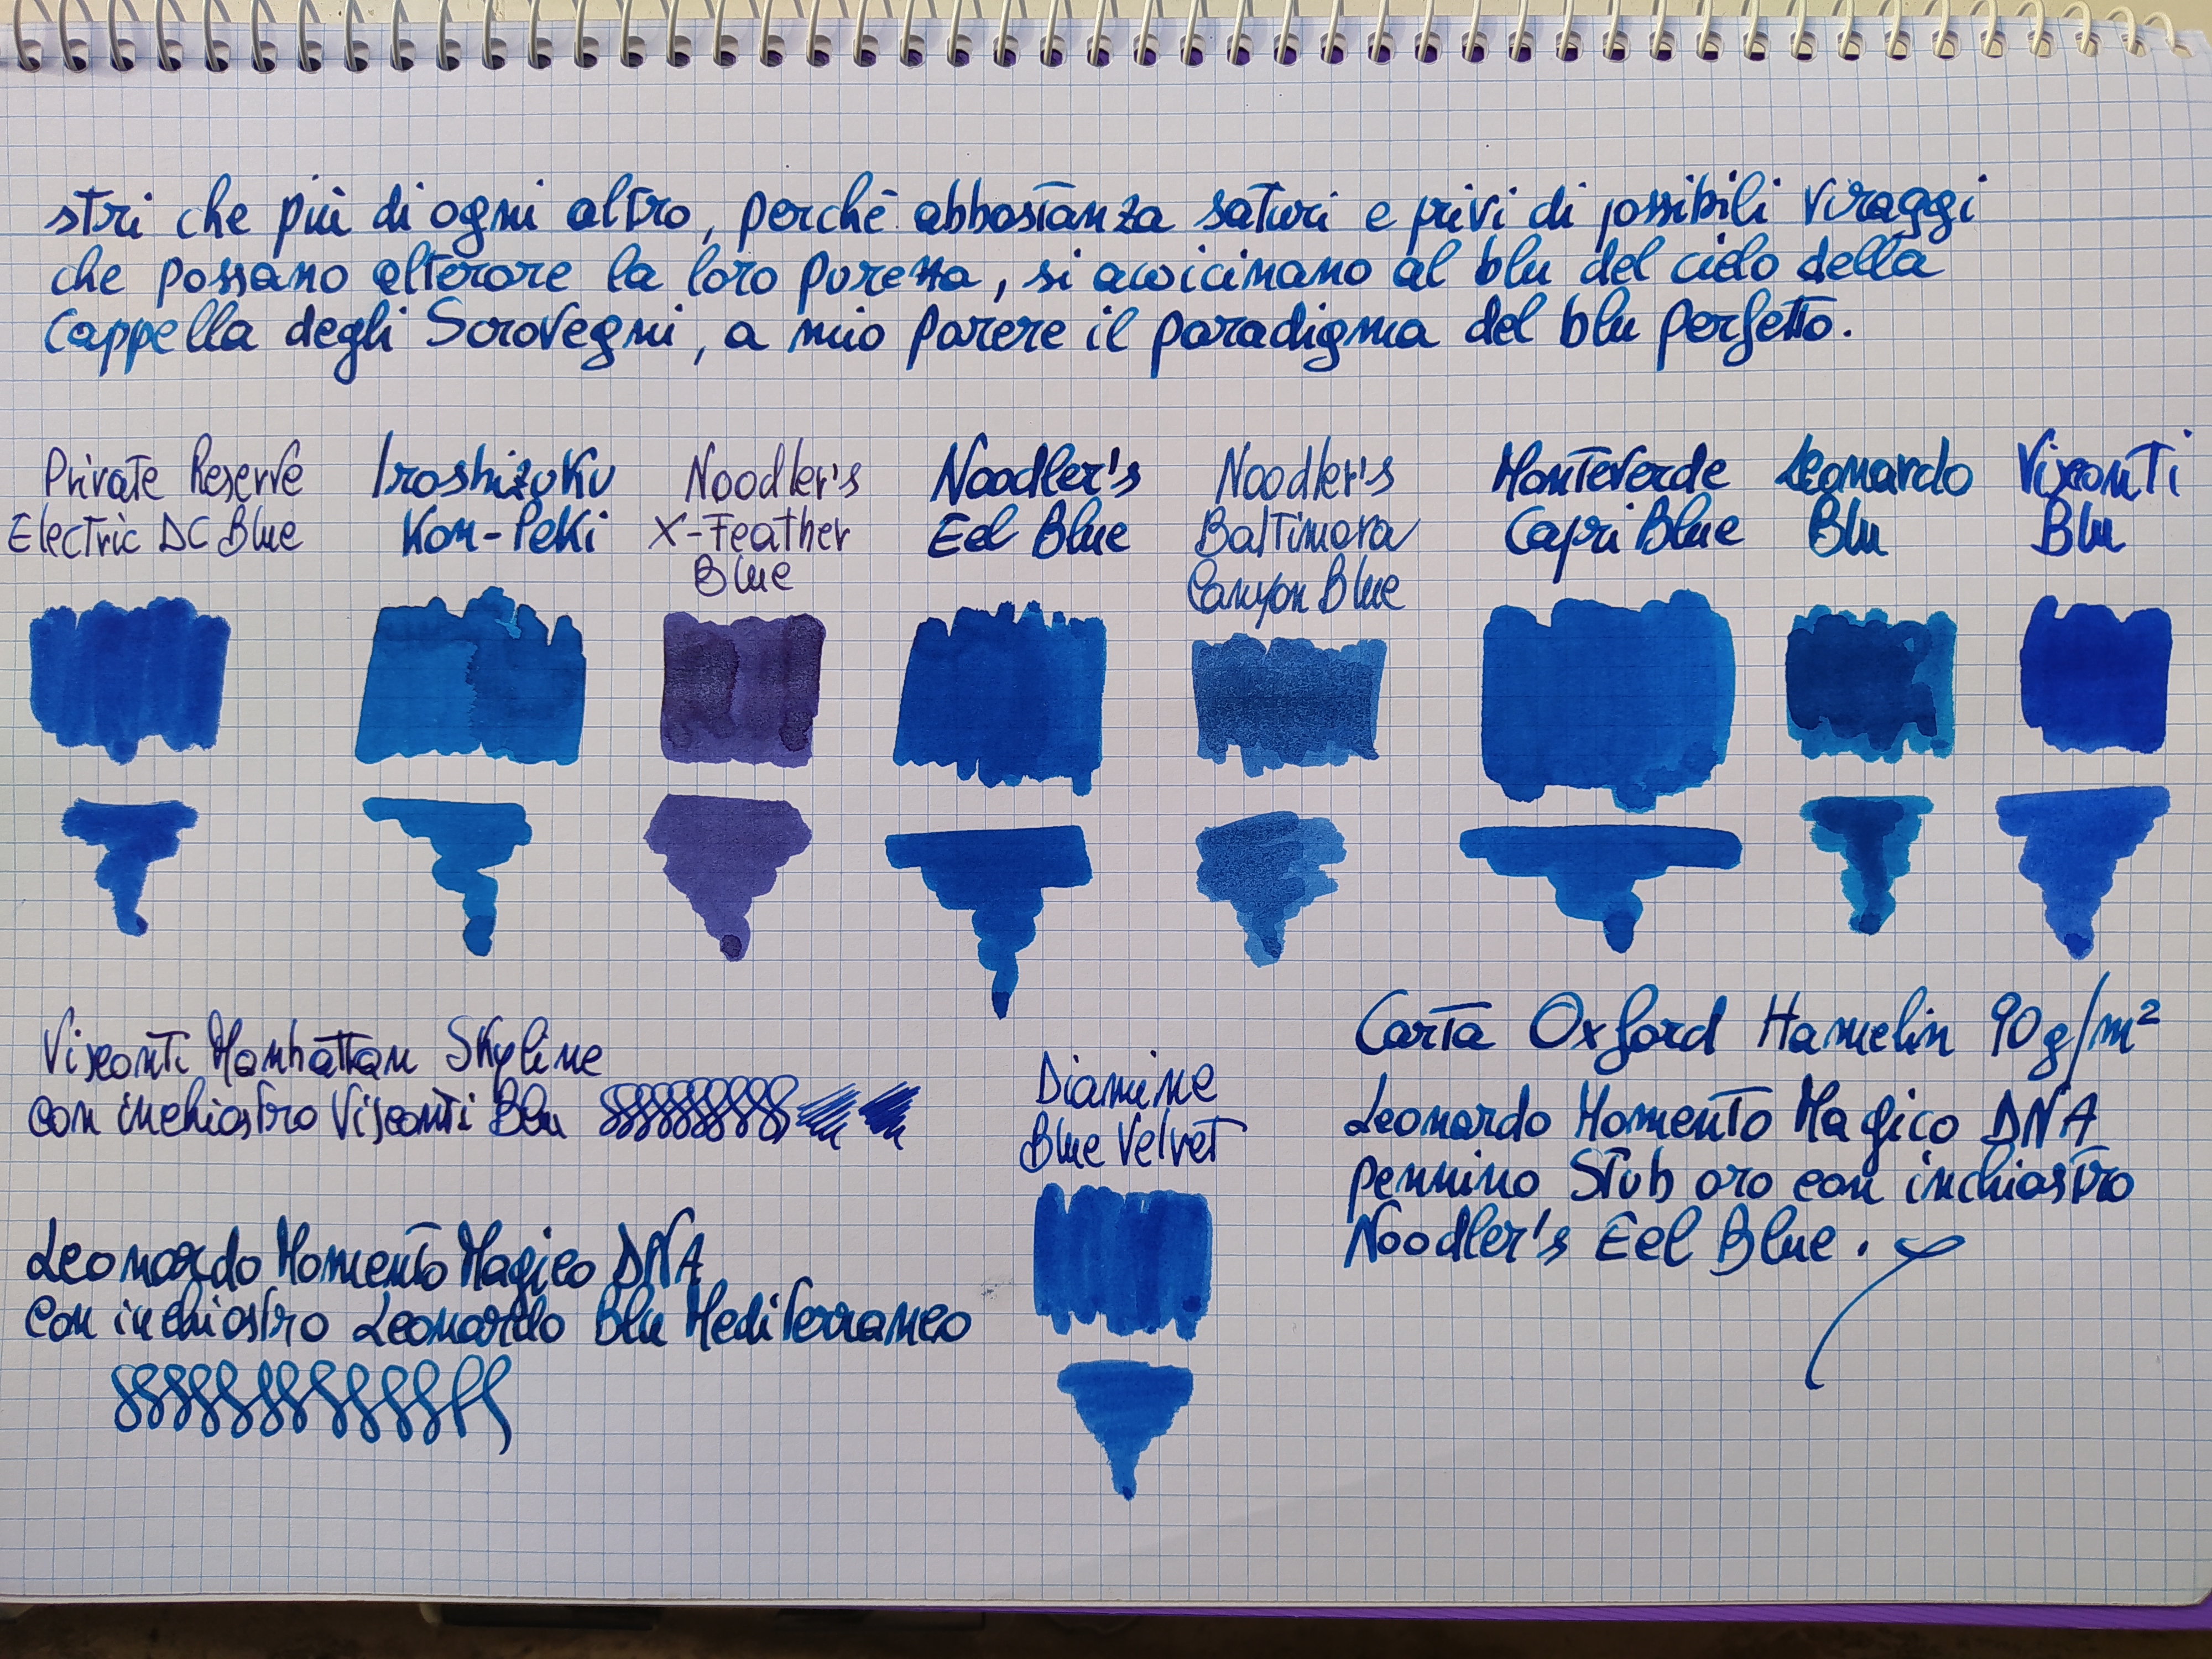 stri che più di ogni altro, perchè abbastanza saturi e privi di possibili viraggi
che possano alterare la loro purezza, si avvicinano al blu del cielo della
Cappella degli Scrovegni, a mio parere il paradigma del blu perfetto.
Private Reserve
Electric DC Blue
Iroshizuku
Kon-Peki
Noodler's
X-Feather
Blue
Noodler's
Eel Blue
Noodler's
Baltimora
Canyon Blue
Monteverde
Capri Blue
Leonardo
Blu
Visconti
Blu
Visconti Manhattan Skyline
con inchiostro Visconti Blu
Leonardo Momento Magico DNA
con inchiostro Leonardo Blu Mediterraneo
Diamine
Blue Velvet
Carta Oxford Hamelin 90g/m²
Leonardo Momento Magico DNA
pennino Stub oro con inchiostro
Noodler's Eel Blue.